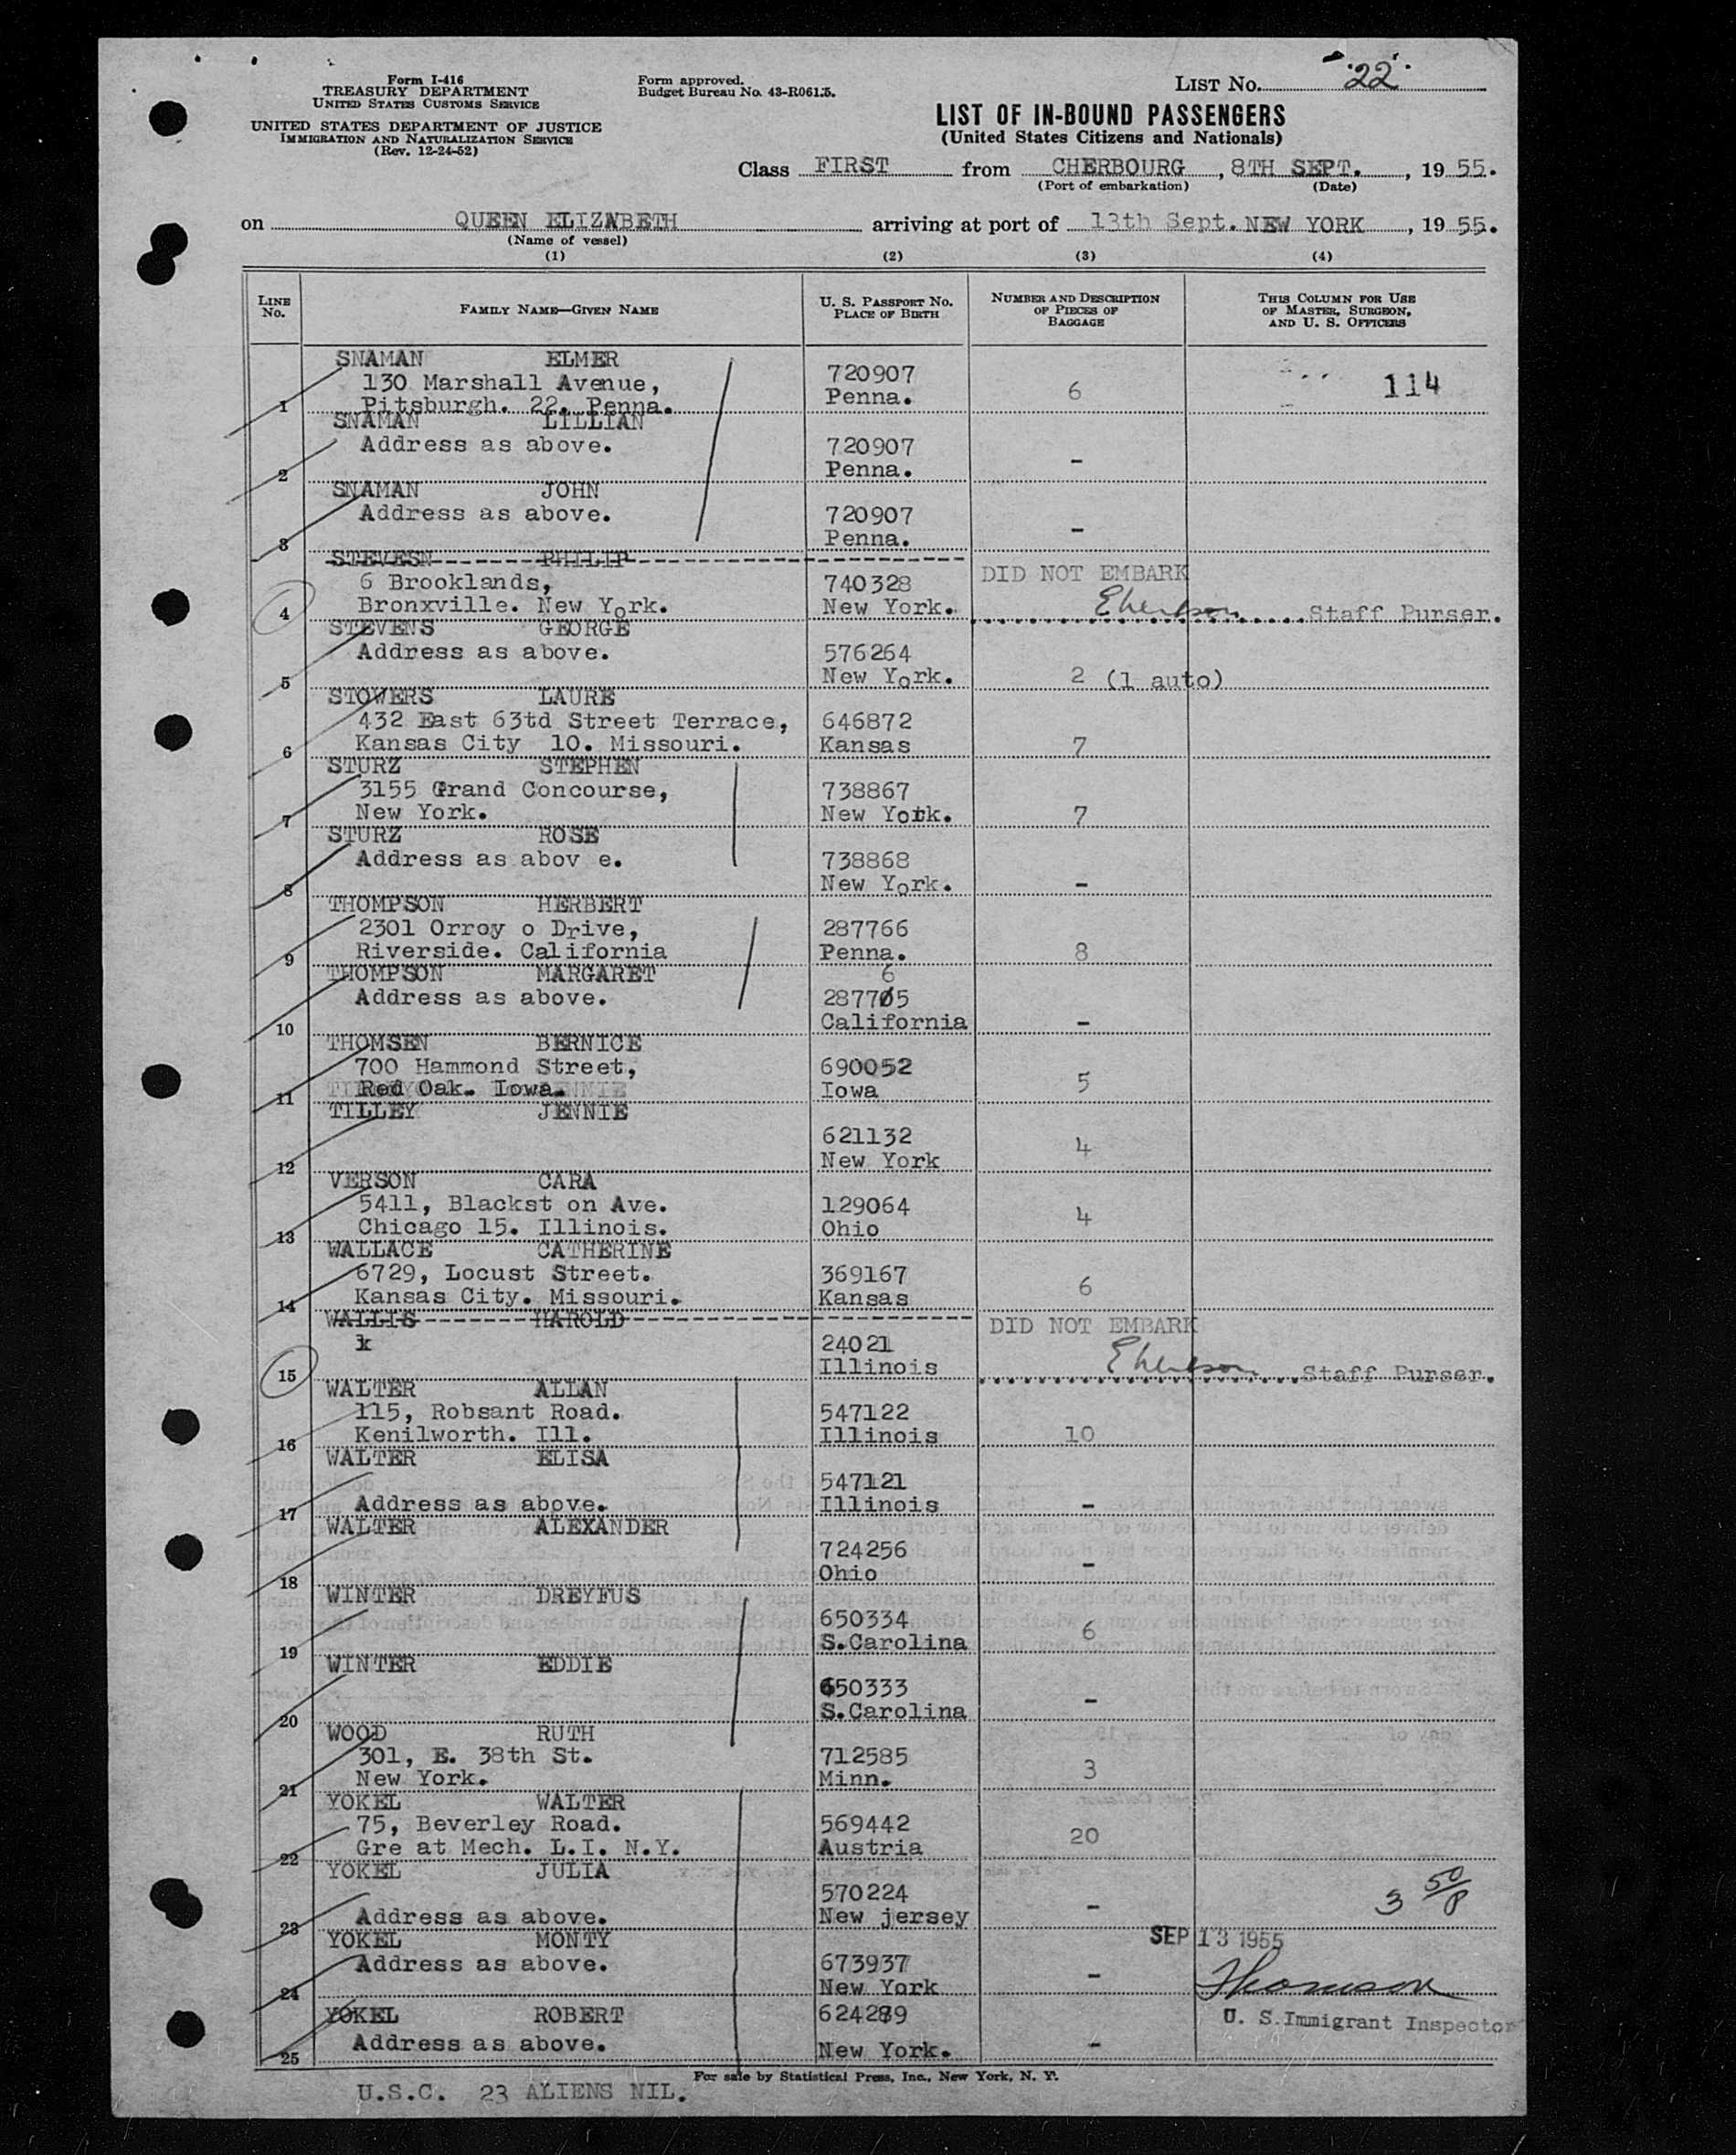 Form I-416
TREASURY DEPARTMENT
UNITED STATES CUSTOMS SERVICE
UNITED STATES DEPARTMENT OF JUSTICE
IMMIGRATION AND NATURALIZATION SERVICE
(Rev. 12-24-52)
Form approved.
Budget Bureau No. 43-R061.5.
LIST No. 22
LIST OF IN-BOUND PASSENGERS
(United States Citizens and Nationals)
Class FIRST from CHERBOURG, 8TH SEPT., 19 55.
(Port of embarkation) (Date)
on QUEEN ELIZABETH arriving at port of 13th Sept. NEW YORK, 19 55.
(Name of vessel)
(1) (2) (3) (4)
LINE No. FAMILY NAME—GIVEN NAME U. S. PASSPORT No. PLACE OF BIRTH NUMBER AND DESCRIPTION OF PIECES OF BAGGAGE THIS COLUMN FOR USE OF MASTER, SURGEON, AND U. S. OFFICERS
SNAMAN ELMER
130 Marshall Avenue, 720907 6 114
1 Pitsburgh. 22. Penna. Penna.
SNAMAN LILLIAN
Address as above. 720907
2 Penna. -
SNAMAN JOHN
Address as above. 720907
3 Penna. -
STEVESN PHILIP
6 Brooklands, 740328 DID NOT EMBARK
4 Bronxville. New York. New York. Staff Purser.
STEVENS GEORGE
Address as above. 576264
5 New York. 2 (1 auto)
STOWERS LAURE
432 East 63td Street Terrace, 646872
6 Kansas City 10. Missouri. Kansas 7
STURZ STEPHEN
3155 Grand Concourse, 738867
7 New York. New York. 7
STURZ ROSE
Address as abov e. 738868
8 New York. -
THOMPSON HERBERT
2301 Orroy o Drive, 287766
9 Riverside. California Penna. 8
THOMPSON MARGARET 6
Address as above. 287705
10 California -
THOMSEN BERNICE
700 Hammond Street, 690052
11 Red Oak. Iowa. Iowa 5
TILLEY JENNIE
621132
12 New York 4
VERSON CARA
5411, Blackst on Ave. 129064
13 Chicago 15. Illinois. Ohio 4
WALLACE CATHERINE
6729, Locust Street. 369167
14 Kansas City. Missouri. Kansas 6
WALLIS HAROLD DID NOT EMBARK
24021
15 Illinois Staff Purser.
WALTER ALLAN
115, Robsant Road. 547122
16 Kenilworth. Ill. Illinois 10
WALTER ELISA
547121
17 Address as above. Illinois -
WALTER ALEXANDER
724256
18 Ohio -
WINTER DREYFUS
650334
19 S.Carolina 6
WINTER EDDIE
650333
20 S.Carolina -
WOOD RUTH
301, E. 38th St. 712585
21 New York. Minn. 3
YOKEL WALTER
75, Beverley Road. 569442
22 Gre at Mech. L.I. N.Y. Austria 20
YOKEL JULIA
570224 3 50/8
23 Address as above. New jersey -
YOKEL MONTY SEP 13 1955
Address as above. 673937
24 New York - Thomson
YOKEL ROBERT 624289 U. S. Immigrant Inspector
25 Address as above. New York. -
For sale by Statistical Press, Inc., New York, N. Y.
U.S.C. 23 ALIENS NIL.